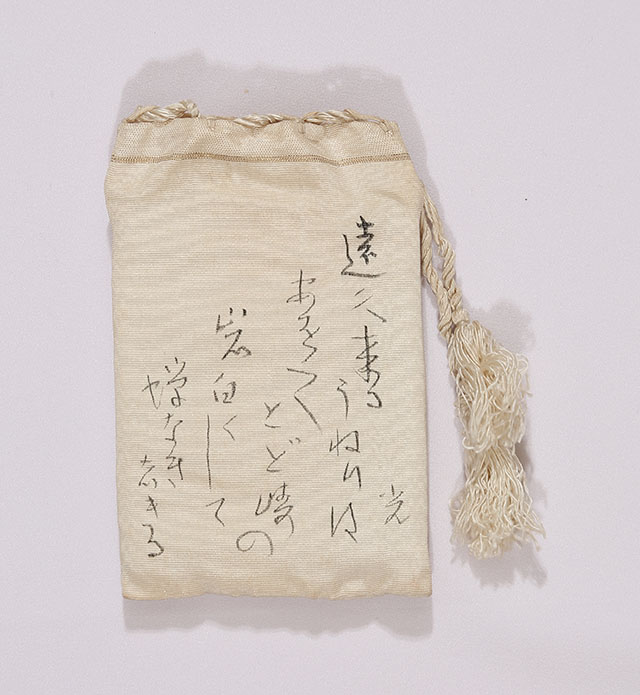 光
遠く来るうねりは
あをくてとど崎の
岩白くして
蝉なきしきる